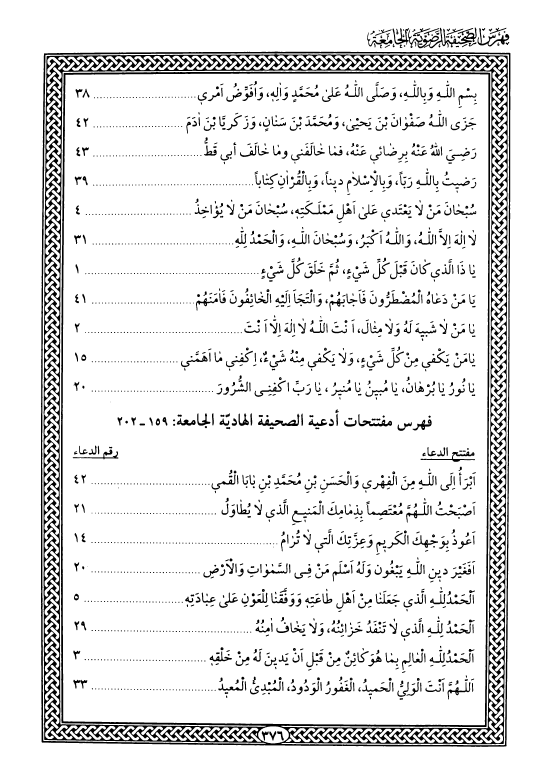 فهرس الصحيفة الرضوية الجامعة
بِسْمِ اللّٰهِ وَبِاللّٰهِ، وَصَلَّى اللّٰهُ عَلىٰ مُحَمَّدٍ وَاٰلِهِ، وَاُفَوِّضُ اَمْرِي ............ ٣٨
جَزَى اللّٰهُ صَفْوٰانَ بْنَ يَحْيىٰ، وَمُحَمَّدَ بْنَ سَنٰانٍ، وَزَكَرِيَّا بْنَ اٰدَمَ ............ ٤٢
رَضِيَ اللّٰهُ عَنْهُ بِرِضٰائي عَنْهُ، فَمٰا خٰالَفَني وَمٰا خٰالَفَ أَبي قَطُّ ............ ٤٣
رَضيتُ بِاللّٰهِ رَبّاً، وَبِالْاِسْلاٰمِ ديناً، وَبِالْقُرْاٰنِ كِتٰاباً ............ ٣٩
سُبْحٰانَ مَنْ لاٰ يَعْتَدي عَلىٰ اَهْلِ مَمْلَكَتِهِ، سُبْحٰانَ مَنْ لاٰ يُؤٰاخِذُ ............ ٤
لاٰ اِلٰهَ اِلاَّ اللّٰهُ، وَاللّٰهُ اَكْبَرُ، وَسُبْحٰانَ اللّٰهِ، وَالْحَمْدُ لِلّٰهِ ............ ٣١
يٰا ذَا الَّذي كٰانَ قَبْلَ كُلِّ شَيْءٍ، ثُمَّ خَلَقَ كُلَّ شَيْءٍ ............ ١
يٰا مَنْ دَعٰاهُ الْمُضْطَرُّونَ فَاَجٰابَهُمْ، وَالْتَجَأَ اِلَيْهِ الْخٰائِفُونَ فَاٰمَنَهُمْ ............ ٤١
يٰا مَنْ لاٰ شَبيهَ لَهُ وَلاٰ مِثٰالَ، اَنْتَ اللّٰهُ لاٰ اِلٰهَ اِلاّٰ اَنْتَ ............ ٢
يٰامَنْ يَكْفي مِنْ كُلِّ شَيْءٍ، وَلاٰ يَكْفي مِنْهُ شَيْءٌ، اِكْفِني مٰا اَهَمَّني ............ ١٥
يٰا نُورُ يٰا بُرْهٰانُ، يٰا مُبينُ يٰا مُنيرُ، يٰا رَبِّ اكْفِنِى الشُّرُورَ ............ ٢٠
فهرس مفتتحات أدعية الصحيفة الهاديّة الجامعة: ١٥٩ ـ ٢٠٢
مفتتح الدعاء رقم الدعاء
اَبْرَأُ اِلَى اللّٰهِ مِنَ الْفِهْري وَالْحَسَنِ بْنِ مُحَمَّدِ بْنِ بٰابَا الْقُمي ............ ٤٢
اَصْبَحْتُ اللّٰهُمَّ مُعْتَصِماً بِذِمٰامِكَ الْمَنيعِ الَّذي لاٰ يُطٰاوَلُ ............ ٢١
اَعُوذُ بِوَجْهِكَ الْكَريمِ وَعِزَّتِكَ الَّتي لاٰ تُرٰامُ ............ ١٤
اَفَغَيْرَ دينِ اللّٰهِ يَبْغُونَ وَلَهُ اَسْلَمَ مَنْ فِى السَّمٰوٰاتِ وَالْاَرْضِ ............ ٢٠
اَلْحَمْدُلِلّٰهِ الَّذي جَعَلَنٰا مِنْ اَهْلِ طٰاعَتِهِ، وَوَفَّقَنٰا لِلْعَوْنِ عَلىٰ عِبٰادَتِهِ ............ ٥
اَلْحَمْدُ لِلّٰهِ الَّذي لاٰ تَنْفَدُ خَزٰائِنُهُ، وَلاٰ يَخٰافُ اٰمِنُهُ ............ ٢٩
اَلْحَمْدُلِلّٰهِ الْعٰالِمِ بِمٰا هُوَ كٰائِنٌ مِنْ قَبْلِ اَنْ يَدينَ لَهُ مِنْ خَلْقِهِ ............ ٣
اَللّٰهُمَّ اَنْتَ الْوَلِيُّ الْحَميدُ، الْغَفُورُ الْوَدُودُ، الْمُبْدِئُ الْمُعيدُ ............ ٣٣
٣٧٦